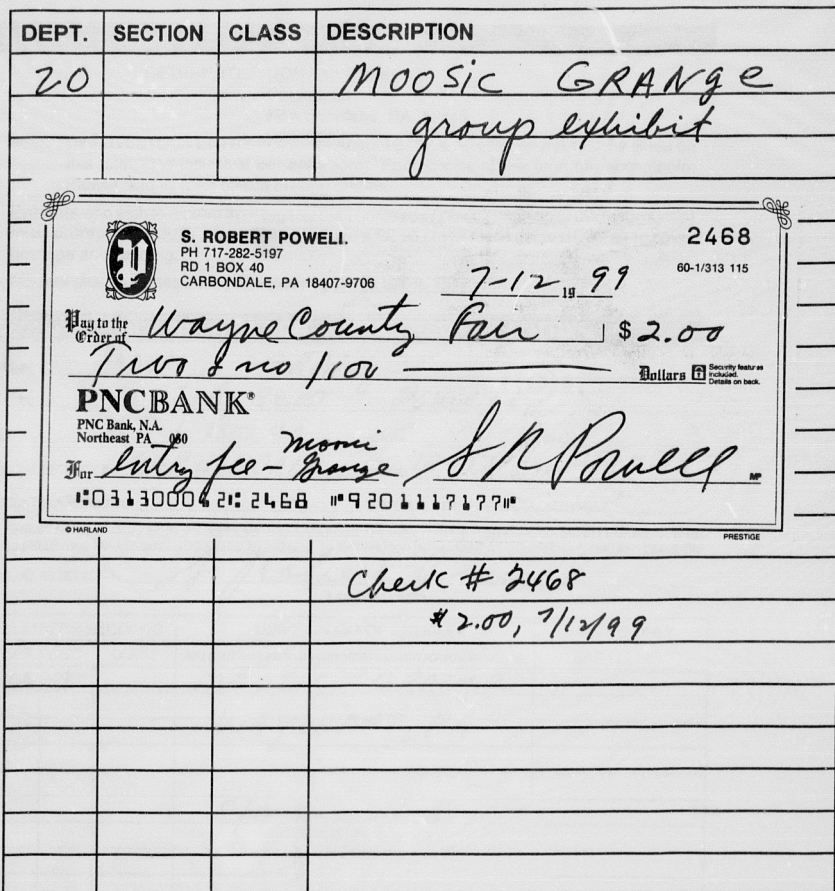 DEPT. SECTION CLASS DESCRIPTION
20 MOOSIC GRANGE
group exhibit
S. ROBERT POWELL
2468
PH 717-282-5197
RD 1 BOX 40
60-1/313 115
CARBONDALE, PA 18407-9706
7-12 19 99
Pay to the Order of Wayne County Fair $2.00
Two & no/100 Dollars
Security features included. Details on back.
PNCBANK®
PNC Bank, N.A.
Northeast PA 080
For Entry fee - Moosic Grange S R Powell MP
⑆031300012⑆ 2468 ⑈9201117177⑈
© HARLAND PRESTIGE
Check # 2468
$2.00, 7/12/99